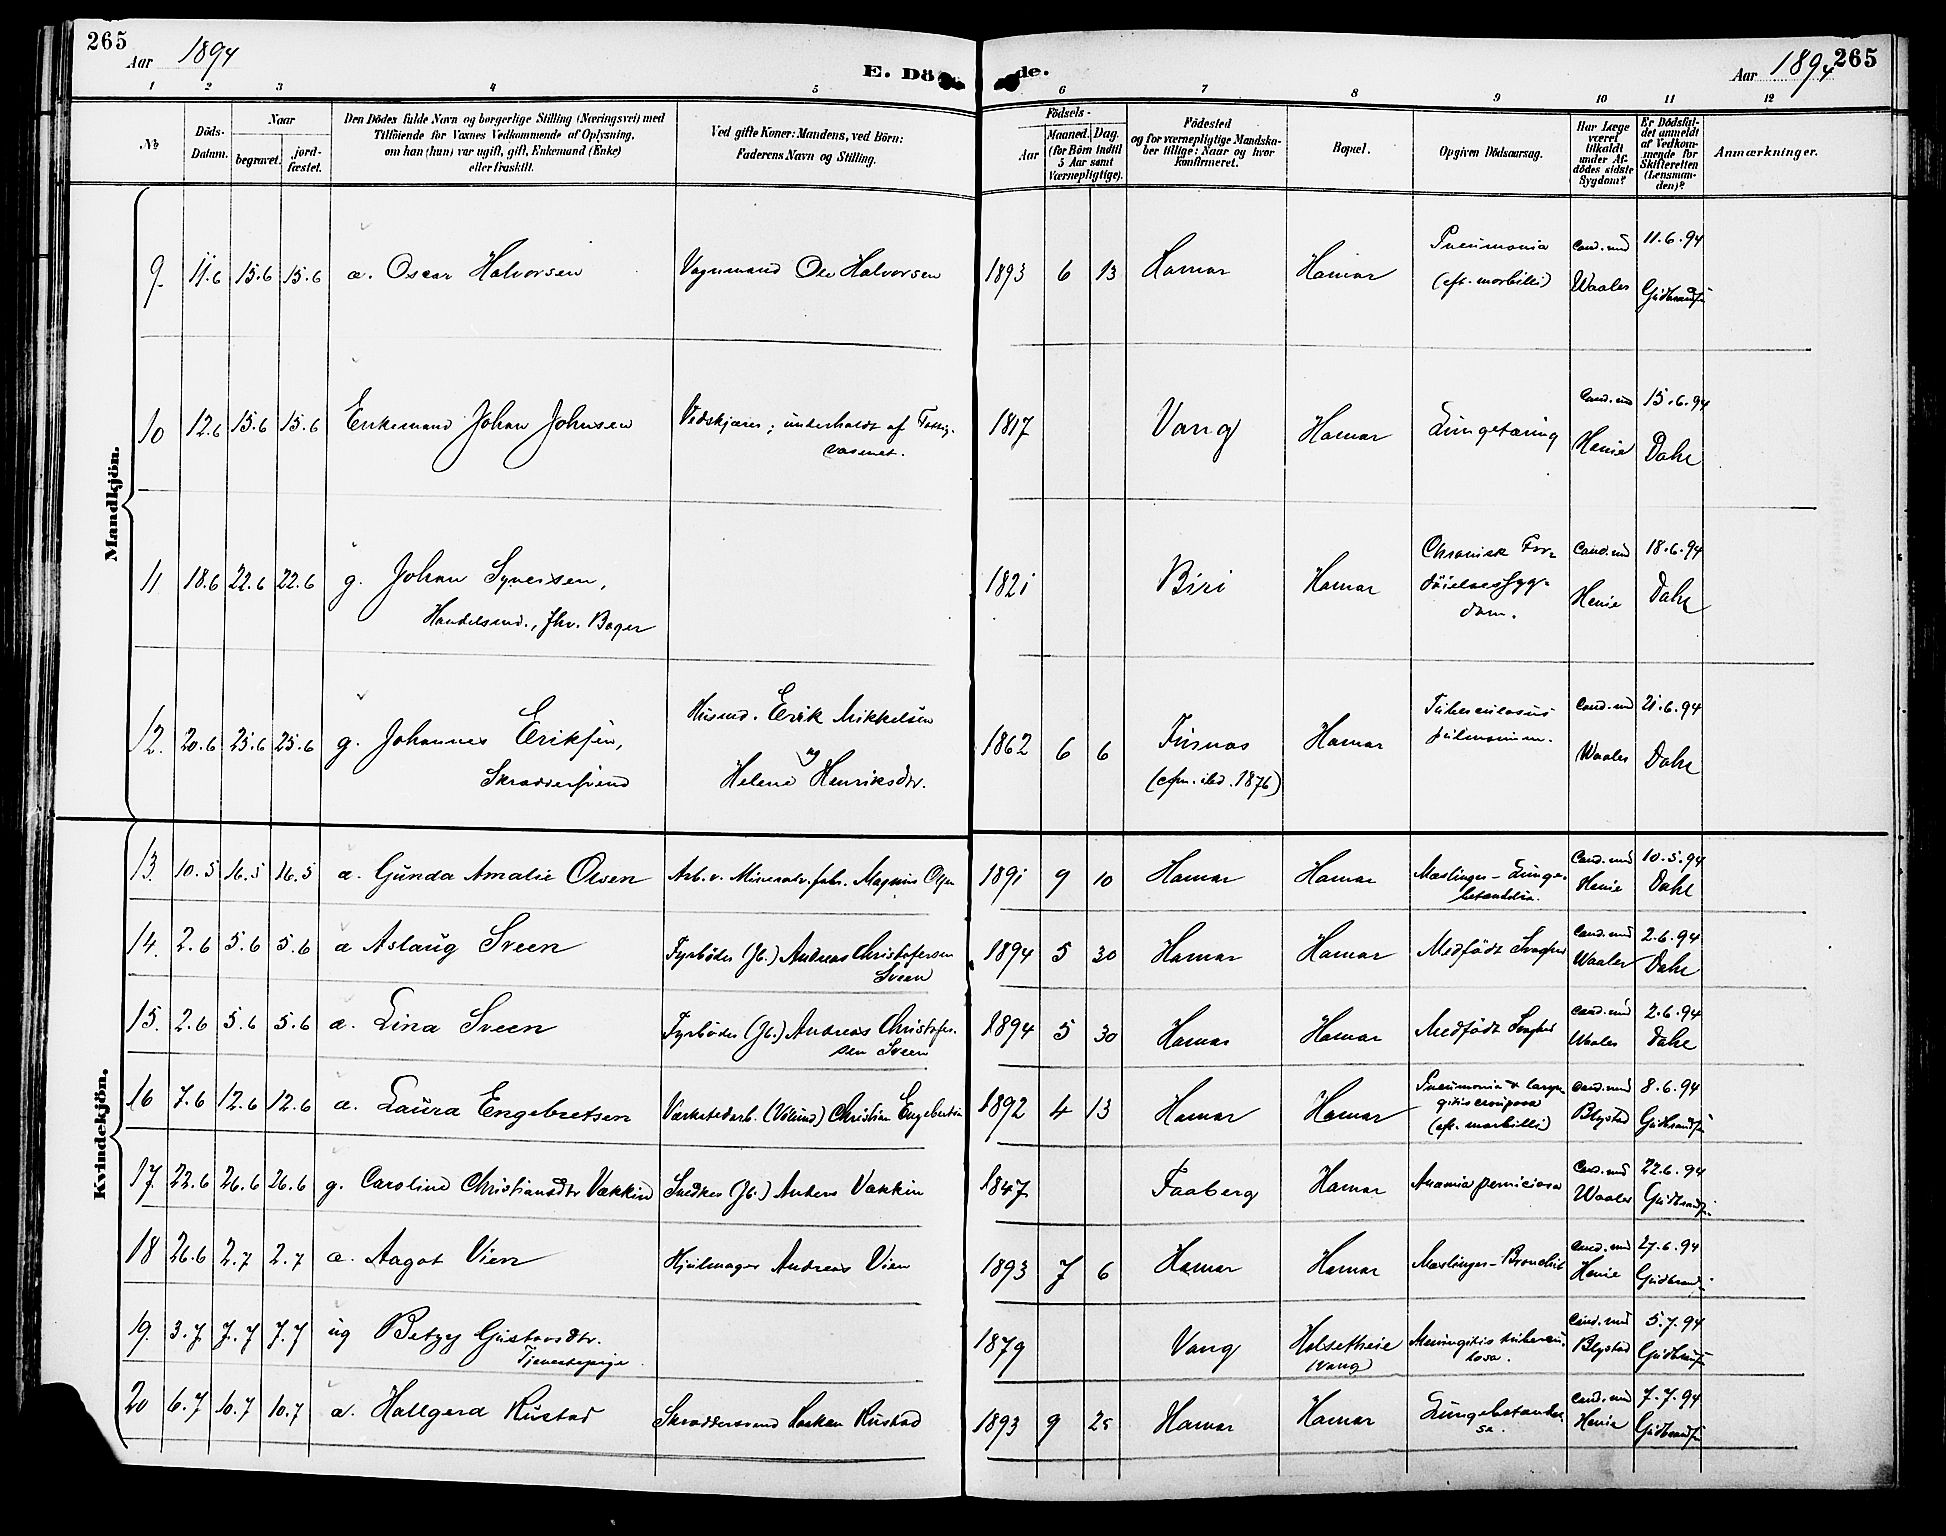 265
Aar 1894
E. Dö
de.
Aar 1894
265
1 2 3 4 5 6 7 8 9 10 11 12
№
Döds-
Datum.
Naar
begravet.
jord-
fæstet.
Den Dödes fulde Navn og borgerlige Stilling (Næringsvei) med
Tilföiende for Voxnes Vedkommende af Oplysning,
om han (hun) var ugift, gift, Enkemand (Enke)
eller fraskilt.
Ved gifte Koner: Mandens, ved Börn:
Faderens Navn og Stilling.
Födsels-
Aar
Maaned. Dag.
(for Börn indtil
5 Aar samt
Værnepligtige).
Födested
og for værnepligtige Mandska-
ber tillige: Naar og hvor
konfirmeret.
Bopæl.
Opgiven Dödsaarsag.
Har Læge
været
tilkaldt
under Af-
dödes sidste
Sygdom?
Er Dödsfal-
det anmeldt
af Vedkom-
mende for
Skifteretten
(Lensman-
den)?
Anmærkninger.
Mandkjön.
9. 11.6 15.6 15.6 a. Oscar Halvorsen Vognmand Ole Halvorsen 1893 6 13 Hamar Hamar Pneumonia
(eft. morbilli)
Cand.med
Waaler
11.6.94
Gudbrandsen
10 12.6 15.6 15.6 Enkemand Johan Johnsen Vedskjærer; underholdt af Fattig-
væsenet.
1817 Vang Hamar Lungetæring
Cand.med
Henie
15.6.94
Dahl
11 18.6 22.6 22.6 g. Johan Syversen,
Handelsmd., fhv. Bager
1821 Biri Hamar Chronisk For-
döielsessyg-
dom.
Cand.med
Henie
18.6.94
Dahl
12. 20.6 25.6 25.6 g. Johannes Eriksen,
Skræddersvend
Husmd. Erik Mikkelsen
og
Helene Henriksdtr.
1862 6 6 Furnæs
(cfm. ibd. 1876)
Hamar
Tuberculosus
pulmonum.
Cand.med
Waaler
21.6.94
Dahl
Kvindekjön.
13. 10.5 16.5 16.5 a. Gunda Amalie Olsen Arb. v. Mineralv.fabr. Magnus Olsen 1891 9 10 Hamar Hamar Mæslinger - Lunge-
betændelse.
Cand.med
Henie
10.5.94
Dahl
14. 2.6 5.6 5.6 a Aslaug Sveen Fyrböder (Jb.) Andreas Christofersen
Sveen
1894 5 30 Hamar Hamar Medfödt Svaghed
Cand.med
Waaler
2.6.94
Dahl
15. 2.6 5.6 5.6 a. Lina Sveen Fyrböder (Jb.) Andreas Christofer-
sen Sveen
1894 5 30 Hamar Hamar Medfödt Svaghed
Cand.med
Waaler
2.6.94
Dahl
16 7.6 12.6 12.6 a. Laura Engebretsen Værkstedarb. (Vilund) Christian Engebretsen 1892 4 13 Hamar Hamar Pneumonia & laryn-
gitis crouposa
(eft. morbilli)
Cand.med
Blystad
8.6.94
Gudbrandsen
17 22.6 26.6 26.6 g. Caroline Christiansdtr Vækkin Snedker (Jb.) Anders Vækkin 1847 Faaberg Hamar Anæmia perniciosa
Cand.med
Waaler
22.6.94
Gudbrandsen
18 26.6 2.7 2.7 a. Aagot Vien Hjulmager Andreas Vien 1893 7 6 Hamar Hamar Mæslinger - Bronchit
Cand.med
Henie
27.6.94
Gudbrandsen
19. 3.7 7.7 7.7 ug Betzy Gustavsdtr.
Tjenestepige
1879 Vang Holsetheie
(Vang)
Meningitis tubercu-
losa.
Cand.med
Blystad
5.7.94
Gudbrandsen
20 6.7 10.7 10.7 a. Hallgerd Rustad Skræddersvend Haaken Rustad 1893 9 25 Hamar Hamar Lungebetændel-
se.
Cand.med
Henie
7.7.94
Gudbrandsen